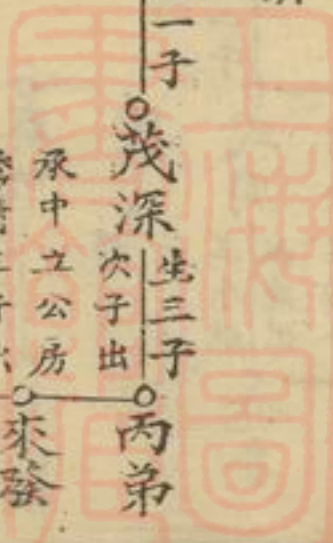 一子
茂深
生三子
次子出
承中立公房
丙弟
來發